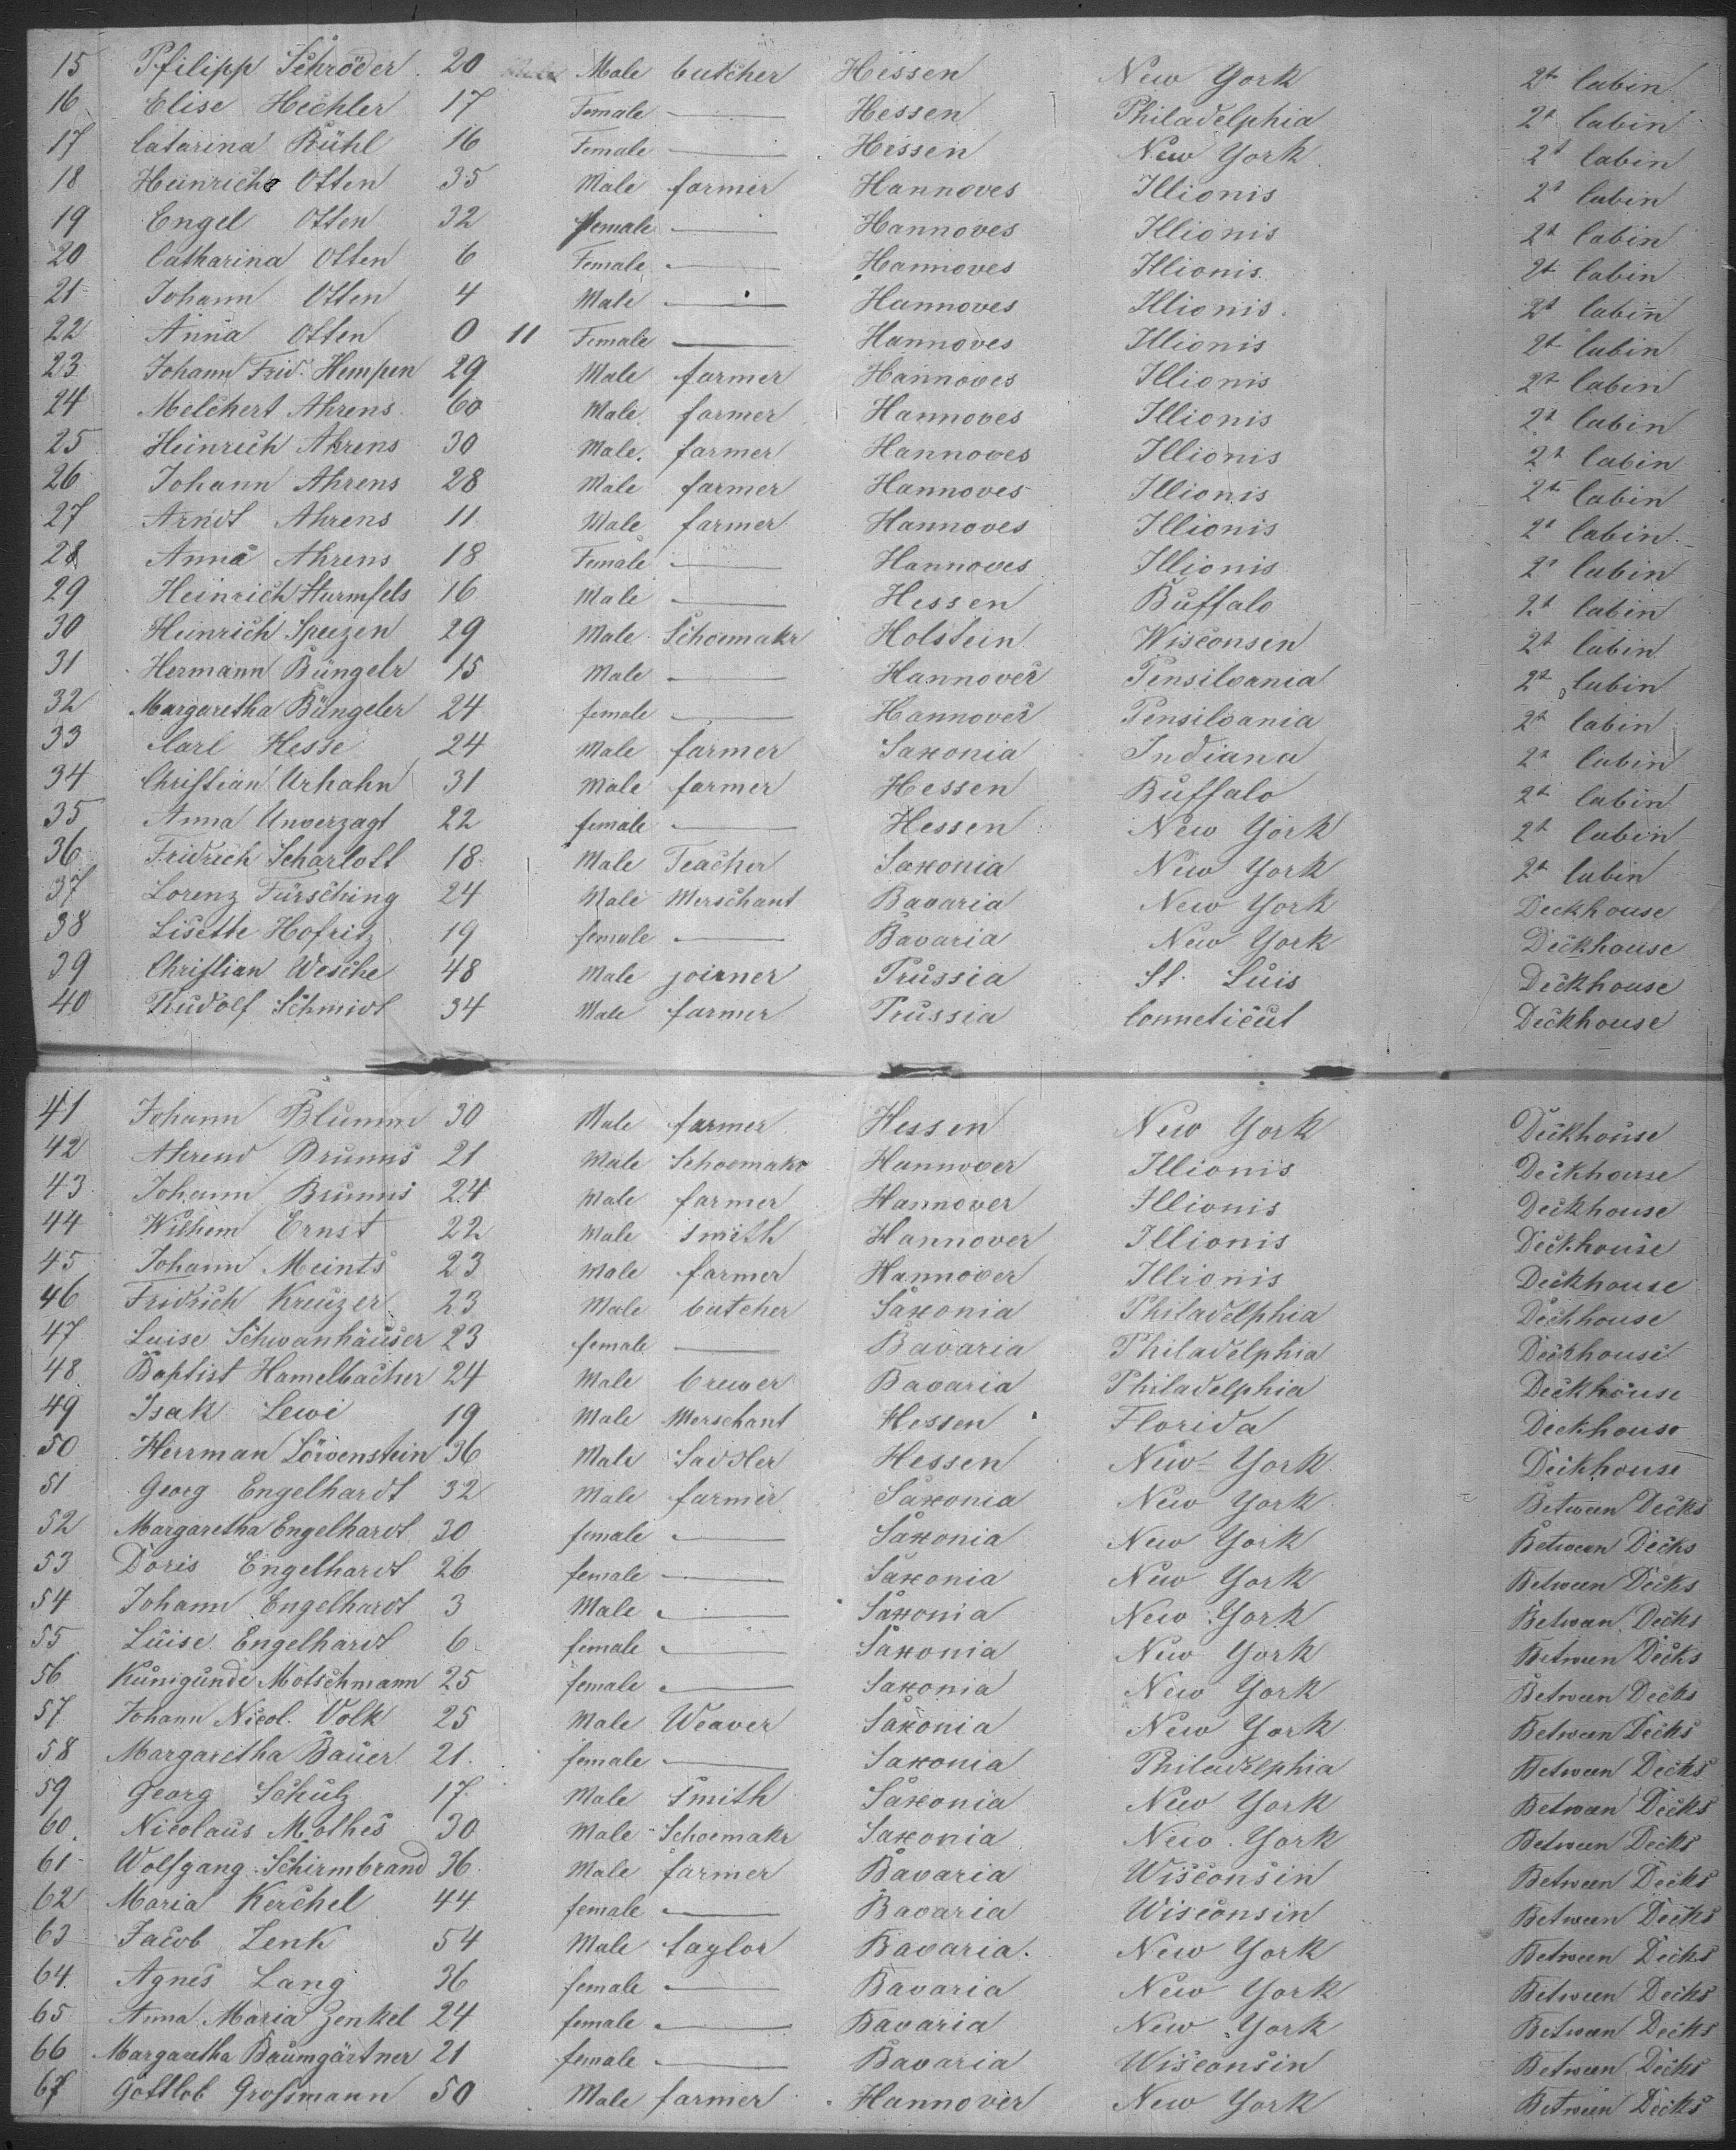 15 Pfilipp Schröder 20 Male butcher Hessen New York 2t Cabin
16 Elise Hechler 17 Female — Hessen Philadelphia 2t Cabin
17 Catarina Rühl 16 Female — Hessen New York 2t Cabin
18 Heinrich Otten 35 Male farmer Hannoves Illionis 2t Cabin
19 Engel Otten 32 female — Hannoves Illionis 2t Cabin
20 Catharina Otten 6 Female — Hannoves Illionis 2t Cabin
21 Johann Otten 4 Male — Hannoves Illionis 2t Cabin
22 Anna Otten 0 11 Female — Hannoves Illionis 2t Cabin
23 Johann Frid. Hempen 29 Male farmer Hannoves Illionis 2t Cabin
24 Melchert Ahrens 60 Male farmer Hannoves Illionis 2t Cabin
25 Heinrich Ahrens 30 Male farmer Hannoves Illionis 2t Cabin
26 Johann Ahrens 28 Male farmer Hannoves Illionis 2t Cabin
27 Arndt Ahrens 11 Male farmer Hannoves Illionis 2t Cabin
28 Anna Ahrens 18 Female — Hannoves Illionis 2t Cabin
29 Heinrich Sturmfels 16 Male — Hessen Buffalo 2t Cabin
30 Heinrich Speezen 29 Male Schoemakr Holstein Wisconsen 2t Cabin
31 Hermann Büngelr 15 Male — Hannover Pensilvania 2t Cabin
32 Margaretha Büngeler 24 female — Hannover Pensilvania 2t Cabin
33 Carl Hesse 24 Male farmer Saxonia Indiana 2t Cabin
34 Christian Urhahn 31 Male farmer Hessen Buffalo 2t Cabin
35 Anna Unverzagt 22 female — Hessen New York 2t Cabin
36 Fridrich Scharlott 18 Male Teacher Saxonia New York 2t Cabin
37 Lorenz Fürsching 24 Male Merschant Bavaria New York Deckhouse
38 Lisette Hofritz 19 female — Bavaria New York Deckhouse
39 Christian Wesche 48 Male joirner Prussia St. Luis Deckhouse
40 Rudolf Schmidt 34 Male farmer Prussia Conneticut Deckhouse
41 Johann Blumm 30 Male farmer Hessen New York Deckhouse
42 Ahrend Brunns 21 Male Schoemakr Hannover Illionis Deckhouse
43 Johann Brunns 24 Male farmer Hannover Illionis Deckhouse
44 Wilhem Ernst 22 Male smith Hannover Illionis Deckhouse
45 Johann Meints 23 Male farmer Hannover Illionis Deckhouse
46 Fridrich Kreuzer 23 Male butcher Saxonia Philadelphia Deckhouse
47 Luise Schwanhäuser 23 female — Bavaria Philadelphia Deckhouse
48 Baptist Hamelbacher 24 Male brewer Bavaria Philadelphia Deckhouse
49 Isak Lewi 19 Male Merschant Hessen Florida Deckhouse
50 Herrman Löwenstein 36 Male Sadtler Hessen New York Deckhouse
51 Georg Engelhardt 32 Male farmer Saxonia New York Between Decks
52 Margaretha Engelhardt 30 female — Saxonia New York Between Decks
53 Doris Engelhardt 26 female — Saxonia New York Between Decks
54 Johann Engelhardt 3 Male — Saxonia New York Between Decks
55 Luise Engelhardt 6 female — Saxonia New York Between Decks
56 Kunigunde Motschmann 25 female — Saxonia New York Between Decks
57 Johann Nicol. Volk 25 Male Weaver Saxonia New York Between Decks
58 Margaretha Bauer 21 female — Saxonia Philadelphia Between Decks
59 Georg Schulz 17 Male smith Saxonia New York Between Decks
60 Nicolaus Mothes 30 Male Schoemakr Saxonia New York Between Decks
61 Wolfgang Schirmbrand 36 Male farmer Bavaria Wisconsin Between Decks
62 Maria Kerchel 44 female — Bavaria Wisconsin Between Decks
63 Jacob Zenk 54 Male taylor Bavaria New York Between Decks
64 Agnes Lang 36 female — Bavaria New York Between Decks
65 Anna Maria Zenkel 24 female — Bavaria New York Between Decks
66 Margaretha Baumgärtner 21 female — Bavaria Wisconsin Between Decks
67 Gottlob Großmann 50 Male farmer Hannover New York Between Decks